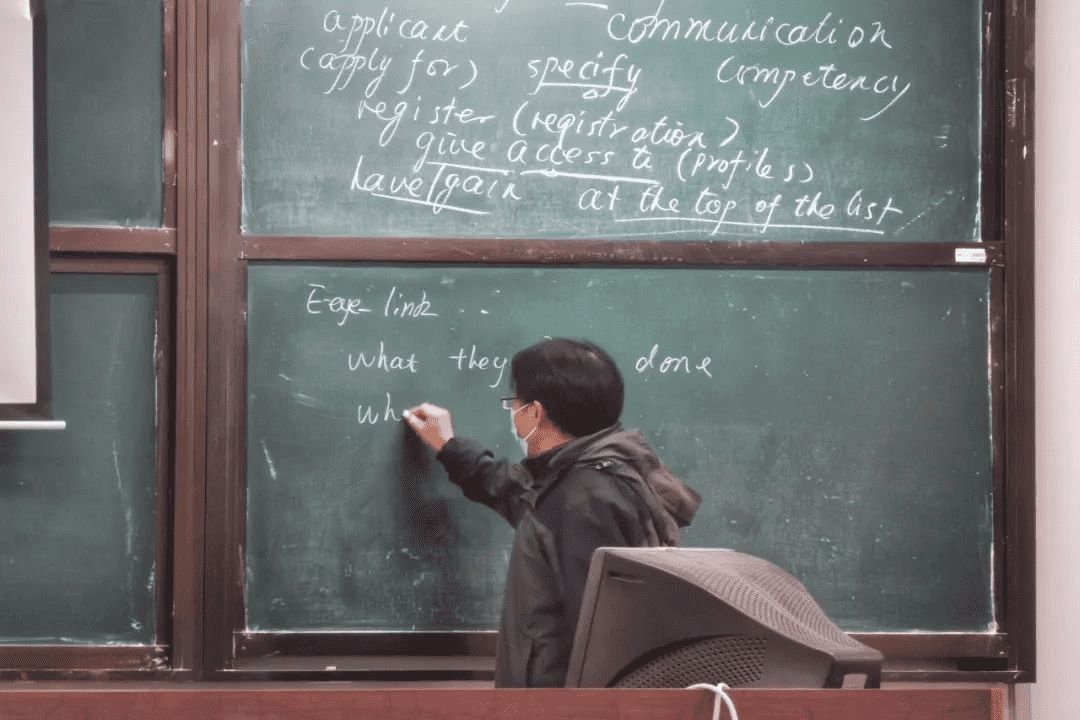 applicant communication
(apply for) specify competency
register (registration)
give access to (profiles)
have/gain at the top of the list
E-eye-link ..
what they done
wh